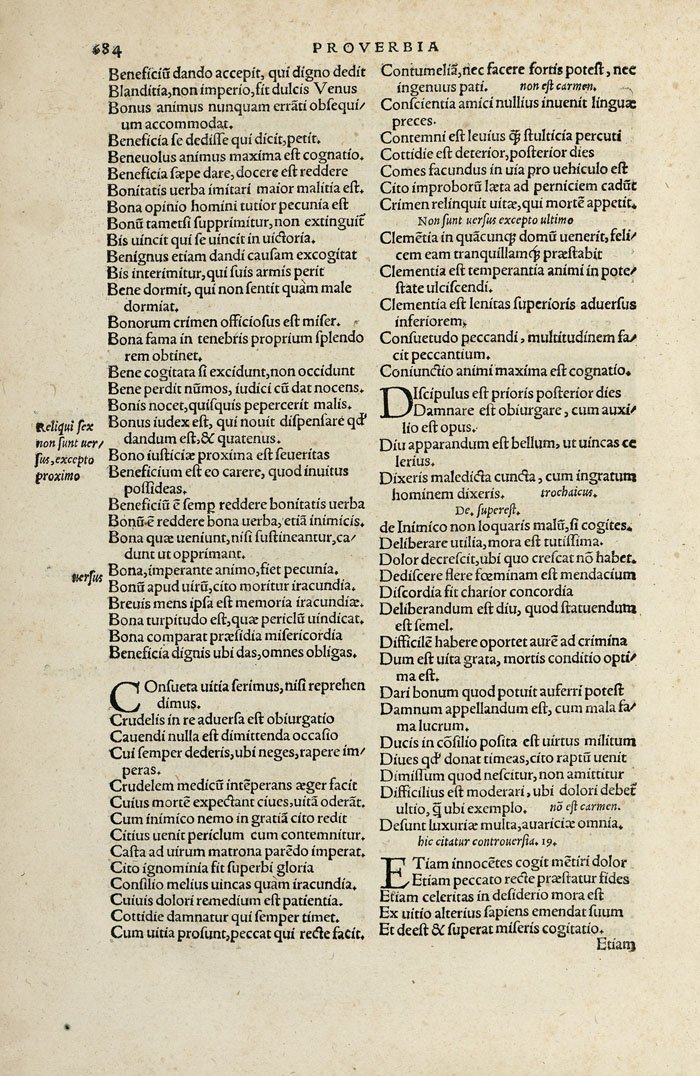 684
PROVERBIA
Beneficiū dando accepit, qui digno dedit
Blanditia, non imperio, fit dulcis Venus
Bonus animus nunquam errāti obsequi/
um accommodat.
Beneficia se dedisse qui dicit, petit.
Beneuolus animus maxima est cognatio.
Beneficia sæpe dare, docere est reddere
Bonitatis uerba imitari maior malitia est.
Bona opinio homini tutior pecunia est
Bonū tametsi supprimitur, non extinguit̄
Bis uincit qui se uincit in uictoria.
Benignus etiam dandi causam excogitat
Bis interimitur, qui suis armis perit
Bene dormit, qui non sentit quàm male
dormiat.
Bonorum crimen officiosus est miser.
Bona fama in tenebris proprium splendo
rem obtinet.
Bene cogitata si excidunt, non occidunt
Bene perdit nūmos, iudici cū dat nocens.
Bonis nocet, quisquis pepercerit malis.
Bonus iudex est, qui nouit dispensare qd'
dandum est, & quatenus.
Reliqui sex
non sunt uer/
sus, excepto
proximo
Bono iusticiæ proxima est seueritas
Beneficium est eo carere, quod inuitus
possideas.
Beneficiū ē semꝑ reddere bonitatis uerba
Bonū ē reddere bona uerba, etiā inimicis.
Bona quæ ueniunt, nisi sustineantur, ca/
dunt ut opprimant.
uersus
Bona, imperante animo, fiet pecunia.
Bonū apud uirū, cito moritur iracundia.
Breuis mens ipsa est memoria iracundiæ.
Bona turpitudo est, quæ periclū uindicat.
Bona comparat præsidia misericordia
Beneficia dignis ubi das, omnes obligas.
COnsueta uitia ferimus, nisi reprehen
dimus.
Crudelis in re aduersa est obiurgatio
Cauendi nulla est dimittenda occasio
Cui semper dederis, ubi neges, rapere im/
peras.
Crudelem medicū intēperans æger facit
Cuius mortē expectant ciues, uitā oderāt.
Cum inimico nemo in gratiā cito redit
Citius uenit periclum cum contemnitur.
Casta ad uirum matrona parēdo imperat.
Cito ignominia fit superbi gloria
Consilio melius uincas quàm iracundia.
Cuiuis dolori remedium est patientia.
Cottidie damnatur qui semper timet.
Cum uitia prosunt, peccat qui recte facit.
Contumeliā, nec facere fortis potest, nec
ingenuus pati. non est carmen.
Conscientia amici nullius inuenit linguæ
preces.
Contemni est leuius q̄ʒ stulticia percuti
Cottidie est deterior, posterior dies
Comes facundus in uia pro uehiculo est
Cito improborū læta ad perniciem cadūt
Crimen relinquit uitæ, qui mortē appetit.
Non sunt uersus excepto ultimo
Clemētia in quācunqʒ domū uenerit, feli/
cem eam tranquillamqʒ præstabit
Clementia est temperantia animi in pote/
state ulciscendi.
Clementia est lenitas superioris aduersus
inferiorem.
Consuetudo peccandi, multitudinem fa/
cit peccantium.
Coniunctio animi maxima est cognatio.
DIscipulus est prioris posterior dies
Damnare est obiurgare, cum auxi/
lio est opus.
Diu apparandum est bellum, ut uincas ce
lerius.
Dixeris maledicta cuncta, cum ingratum
hominem dixeris. trochaicus.
De. superest.
de Inimico non loquaris malū, si cogites.
Deliberare utilia, mora est tutissima.
Dolor decrescit, ubi quo crescat nō habet.
Dediscere flere fœminam est mendacium
Discordia fit charior concordia
Deliberandum est diu, quod statuendum
est semel.
Difficilē habere oportet aurē ad crimina
Dum est uita grata, mortis conditio opti/
ma est.
Dari bonum quod potuit auferri potest
Damnum appellandum est, cum mala fa/
ma lucrum.
Ducis in cōsilio posita est uirtus militum
Diues qd' donat timeas, cito raptū uenit
Dimissum quod nescitur, non amittitur
Difficilius est moderari, ubi dolori debet̄
ultio, q̄ ubi exemplo. nō est carmen.
Desunt luxuriæ multa, auariciæ omnia.
hic citatur controuersia. 19.
ETiam innocētes cogit mētiri dolor
Etiam peccato recte præstatur fides
Etiam celeritas in desiderio mora est
Ex uitio alterius sapiens emendat suum
Et deest & superat miseris cogitatio.
Etiam